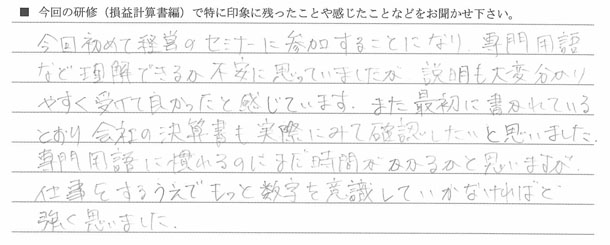 ■ 今回の研修（損益計算書編）で特に印象に残ったことや感じたことなどをお聞かせ下さい。
今回初めて経営のセミナーに参加することになり、専門用語
など理解できるか不安に思っていましたが、説明も大変分かり
やすく受けて良かったと感じています。また最初に書かれている
とおり会社の決算書も実際にみて確認したいと思いました。
専門用語に慣れるのにまだ時間がかかるかと思いますが、
仕事をするうえでもっと数字を意識していかなければと
強く思いました。